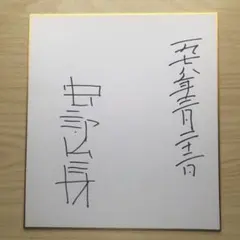 一九七八年三月二十二日
安部公房